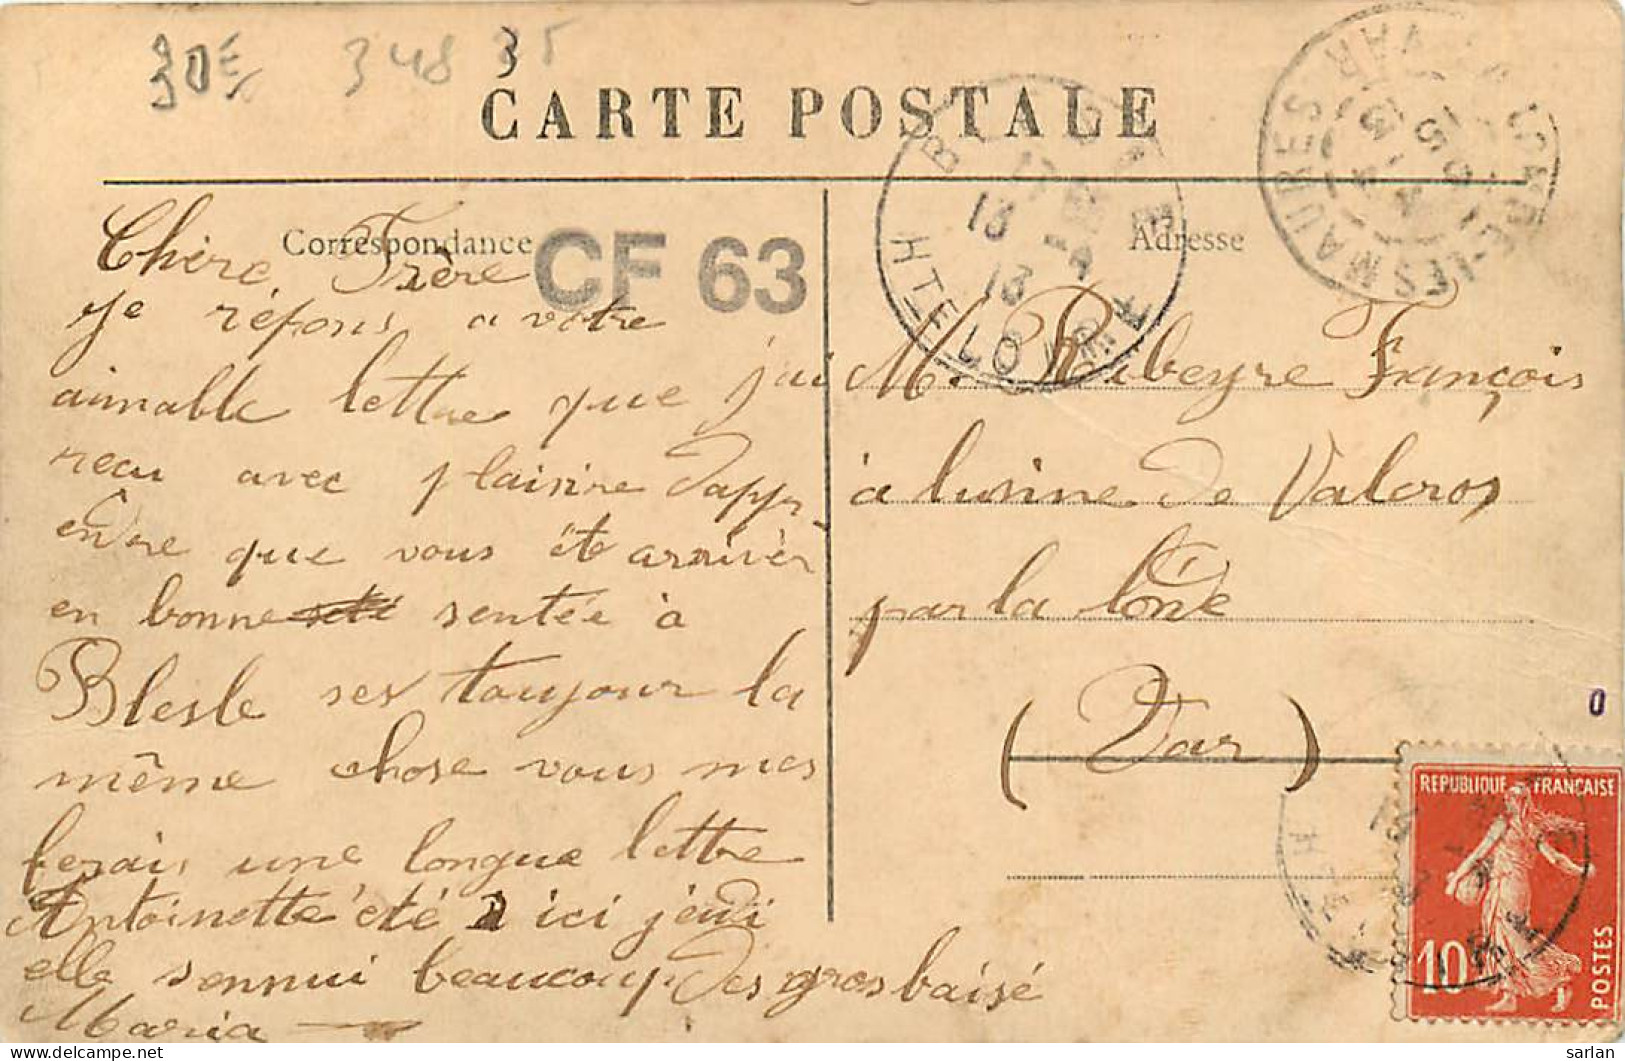 30€ 348 35
3
CARTE POSTALE
Correspondance
CF 63
Adresse
BLESLE
17 
13 -4
13
HTE LOIRE
LESMAURES
VAR
Chère Frère
je répons a votre
aimable lettre que j'ai
recu avec plaisire dappr-
endre que vous éte arrivér
en bonne sentée à
Blesle ses toujour la
même chose vous mes
ferais une longue lettre
Antoinette été ici jeudi
elle sennui beaucoup des gros baisé
Maria
M. Ribeyre François
à lusine de Valcros
par la londe
(Var)
0
REPUBLIQUE FRANÇAISE
10
POSTES
sarlan